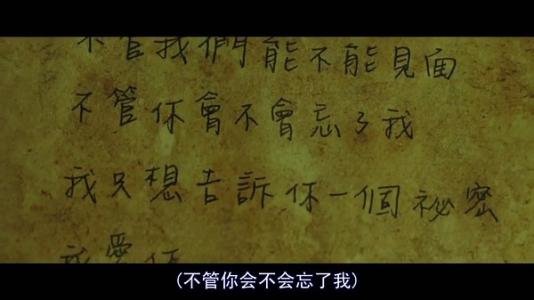 不管我們能不能見面
不管你會不會忘了我
我只想告訴你一個祕密
我愛你
(不管你会不会忘了我)